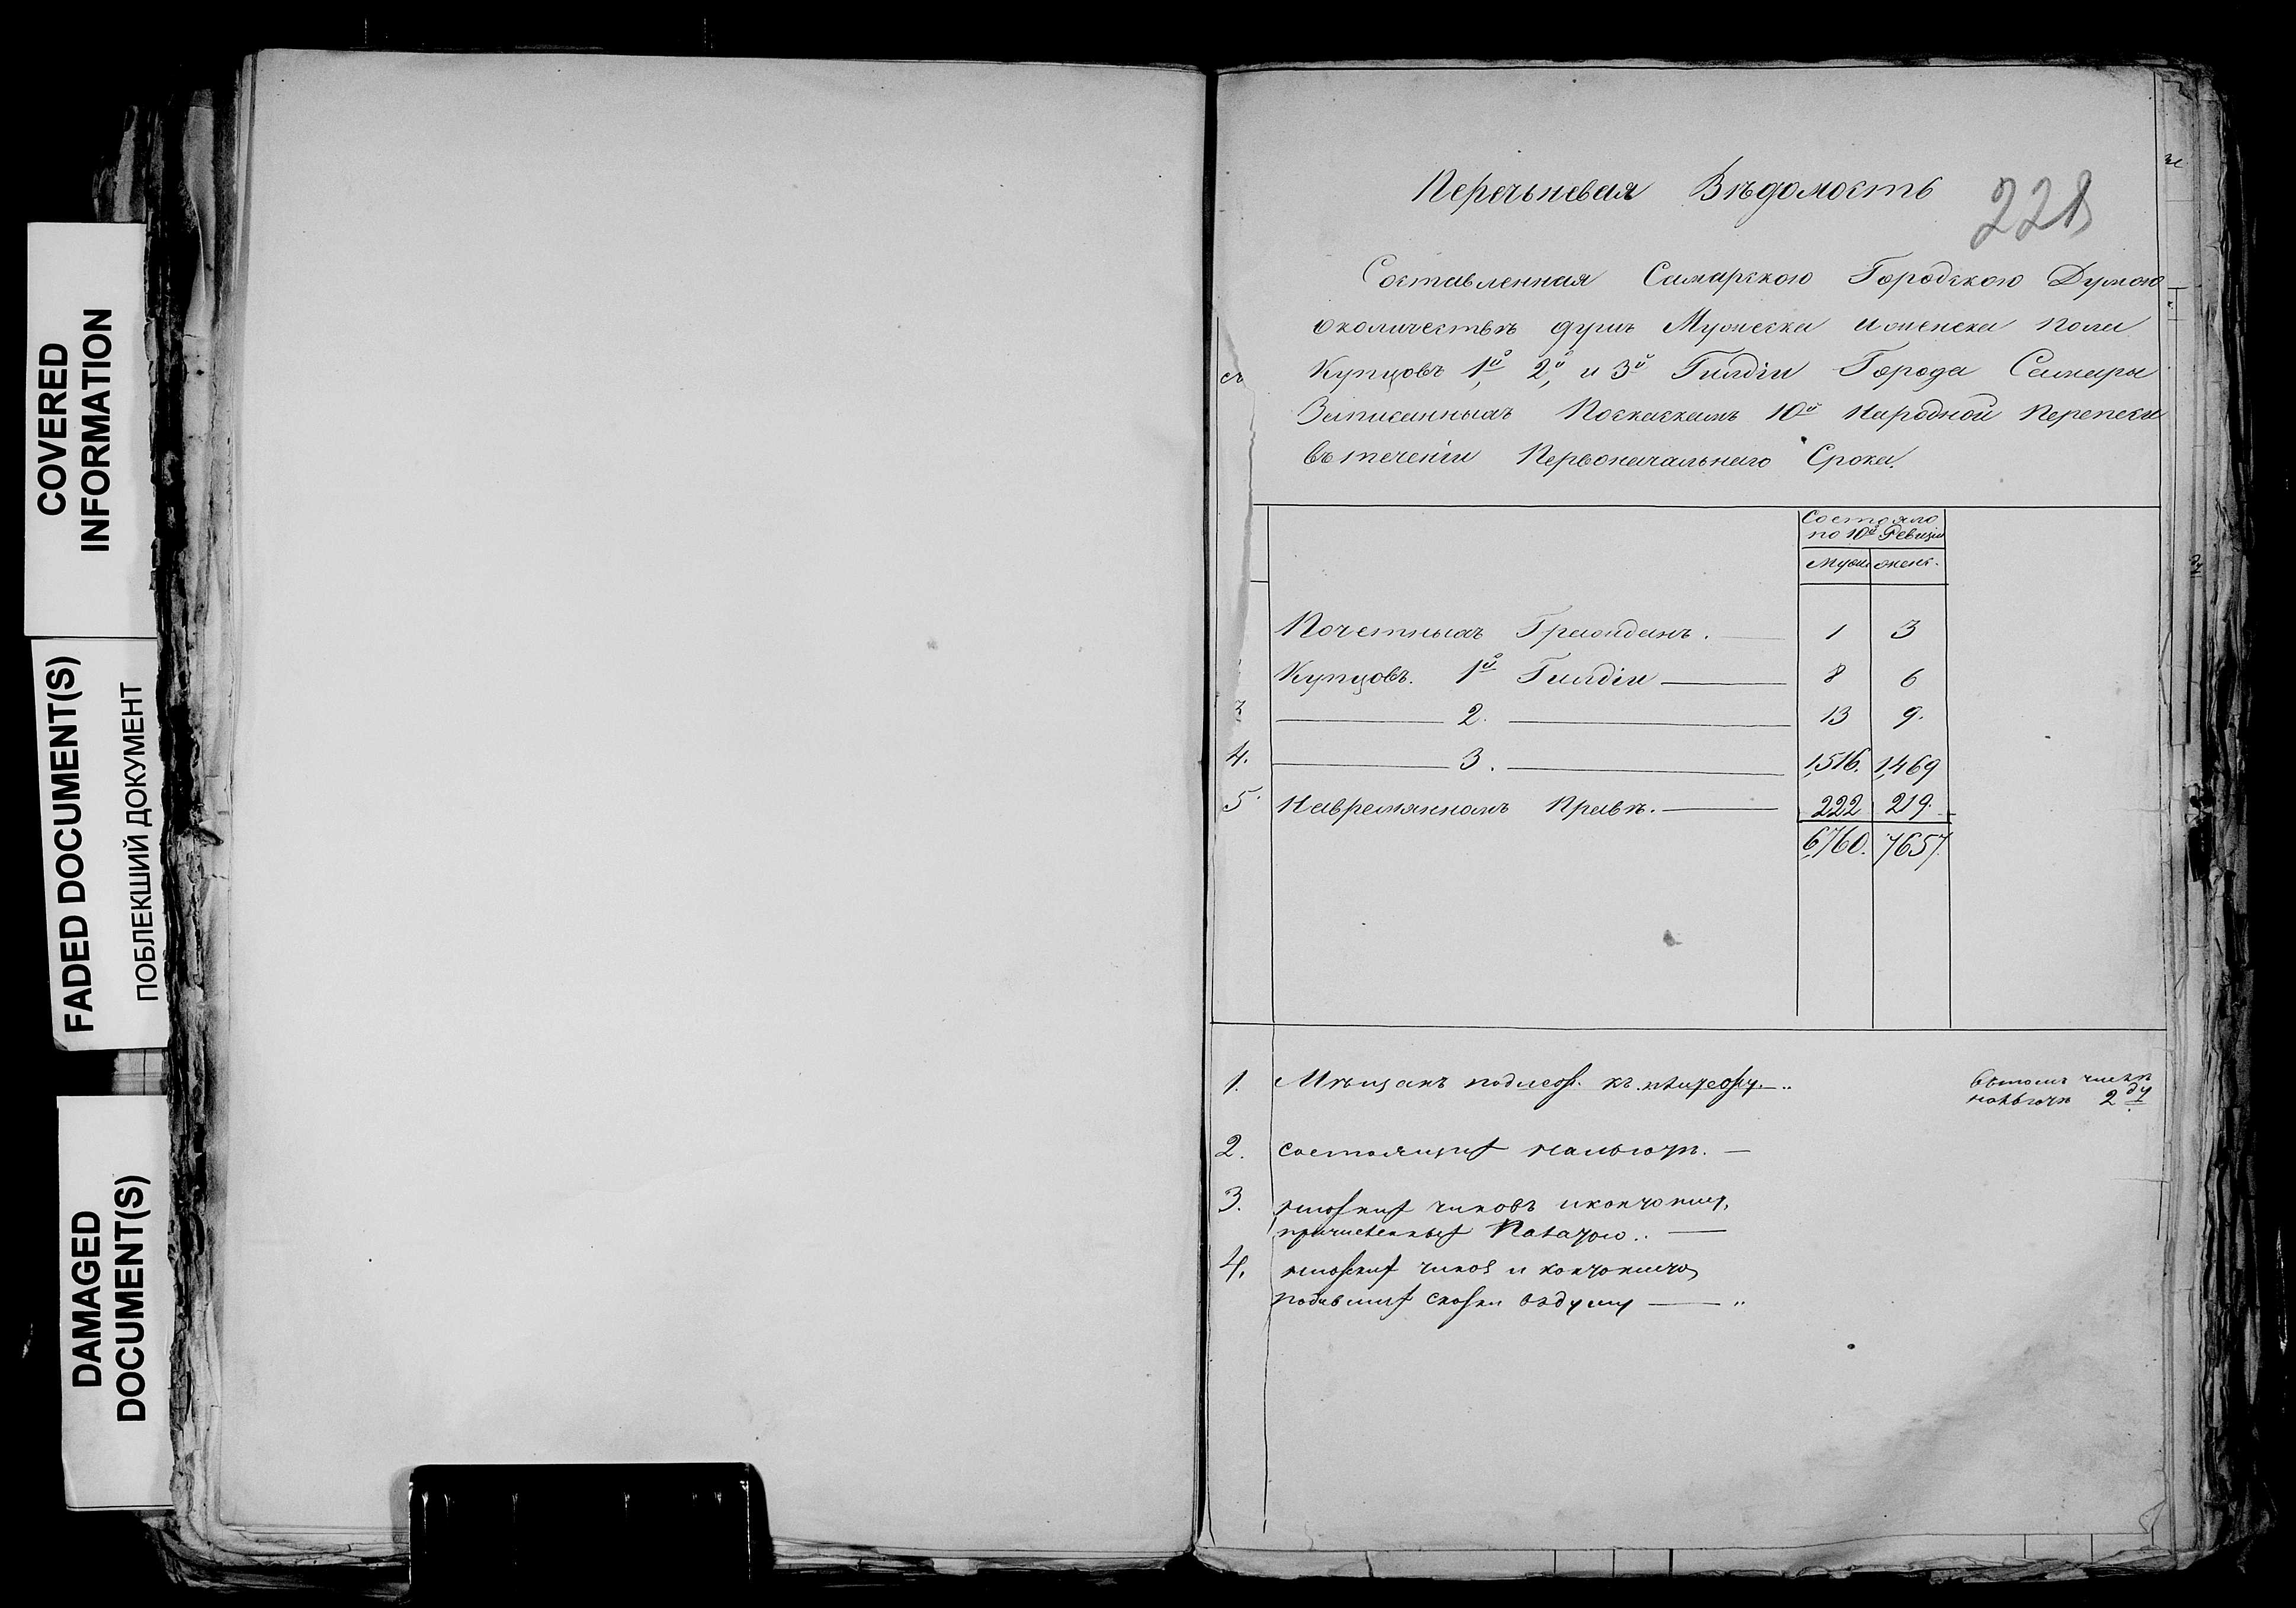 COVERED
INFORMATION
FADED DOCUMENT(S)
ПОБЛЕКШИЙ ДОКУМЕНТ
DAMAGED
DOCUMENT(S)
Перечьневая Вѣдомость
228
Составленная Самарскою Городскою Думою
околичествѣ душъ Мужеска иженска пола
Купцовъ 1й, 2й, и 3й Гилдіи Города Самары
Записанныхъ Посказкамъ 10й Народной Переписи
въ теченіи Первоначальнаго Срока.
Состояло
по 10й Ревизіи
Муж. женс.
Почетныхъ Гражданъ. 1 3
Купцовъ. 1й Гилдіи 8 6
2. 13 9.
4. 3. 1,516. 1,469
5. Навремянномъ Правѣ. 222 219.
6,760. 7657.
1. Мѣщанъ подлеж. къ
втомъ числѣ
2 ду
2. состоящих
3. чиновъ
причисленных Палатою.
4. чинов и
подавших сказки